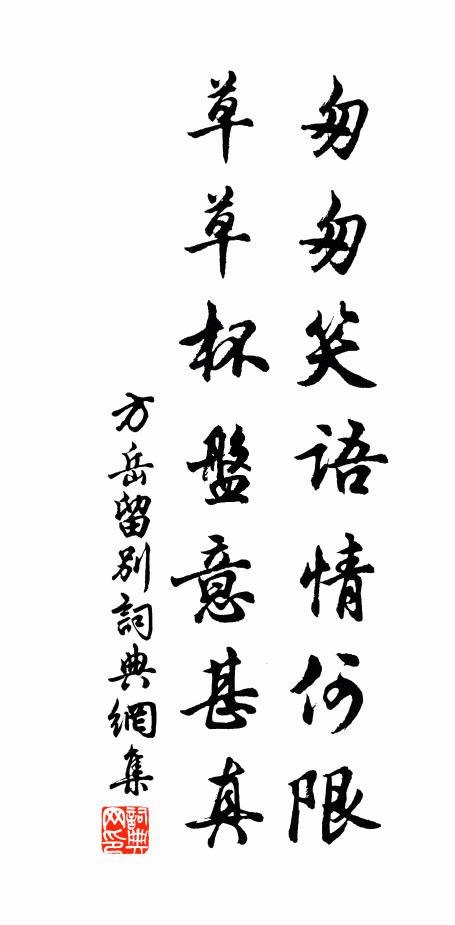 匆匆笑語情何限
草草杯盤意甚真
方岳留別詞典網集
詞典
网印